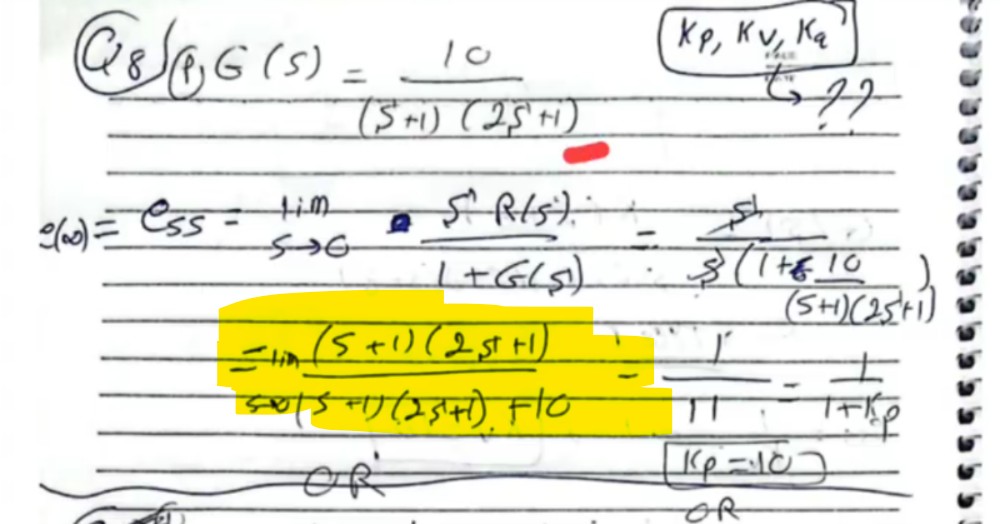 Q8) P, G(s) = 10 / (s+1)(2s+1)
Kp, Kv, Ka
??
e(∞) = ess = lim s→0 s R(s) / 1+G(s) = s / s(1+ 10 / (s+1)(2s+1))
= lim s→0 (s+1)(2s+1) / (s+1)(2s+1) +10 = 1 / 11 = 1 / 1+Kp
Kp = 10
OR
OR